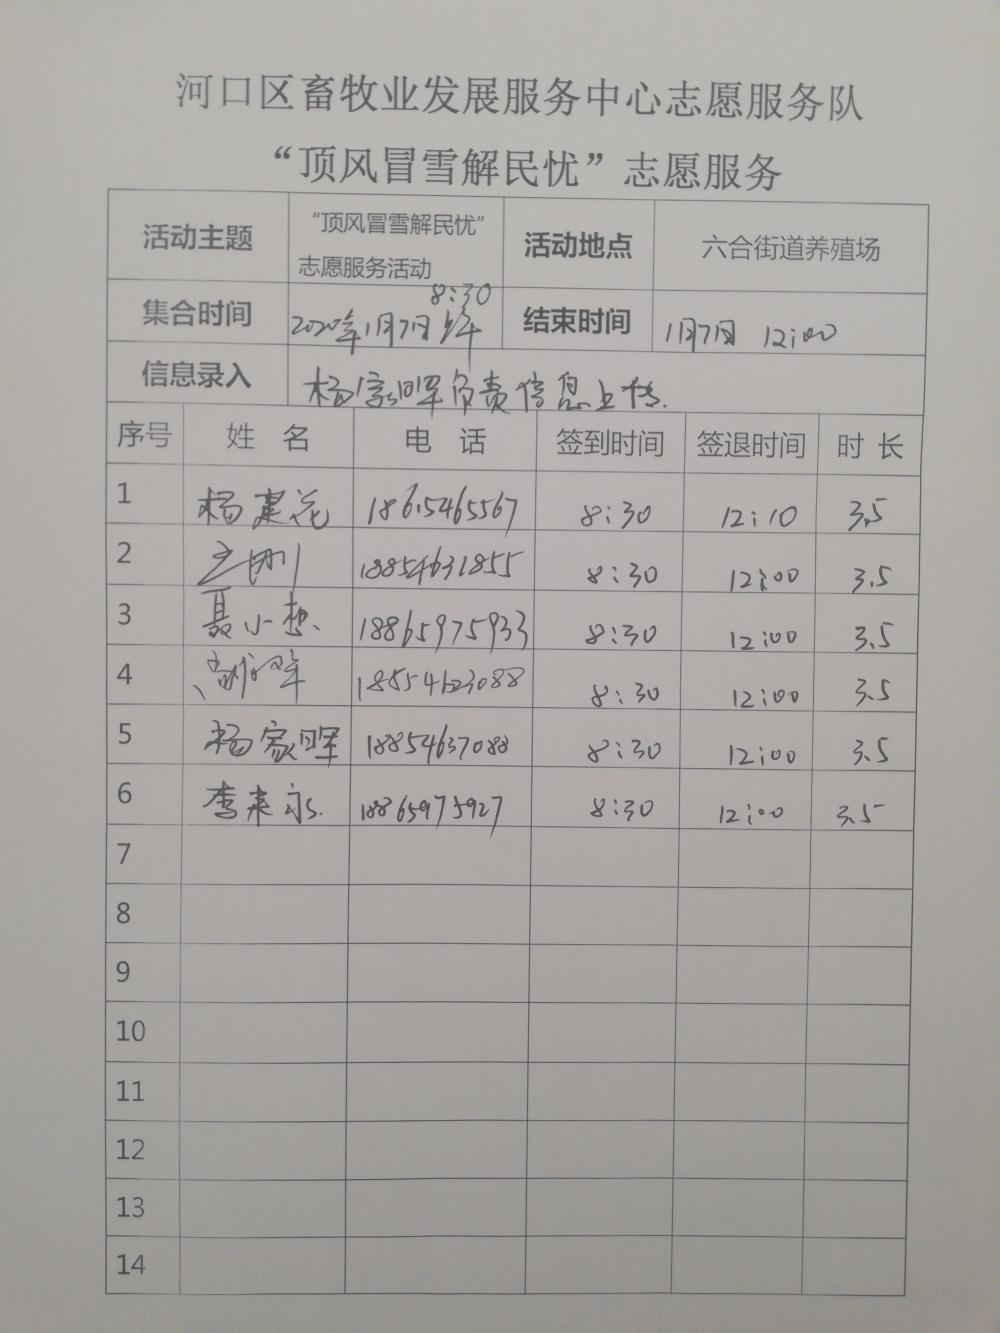 河口区畜牧业发展服务中心志愿服务队
“顶风冒雪解民忧”志愿服务
活动主题 “顶风冒雪解民忧”志愿服务活动 活动地点 六合街道养殖场
集合时间 2020年1月7日上午8:30 结束时间 1月7日 12:00
信息录入 杨家晖负责信息上传.
序号 姓 名 电 话 签到时间 签退时间 时 长
1 杨建花 18615465567 8:30 12:10 3.5
2 18854631855 8:30 12:00 3.5
3 聂小想 18865975933 8:30 12:00 3.5
4 18854623088 8:30 12:00 3.5
5 杨家晖 18854637088 8:30 12:00 3.5
6 李来永 18865975927 8:30 12:00 3.5
7
8
9
10
11
12
13
14